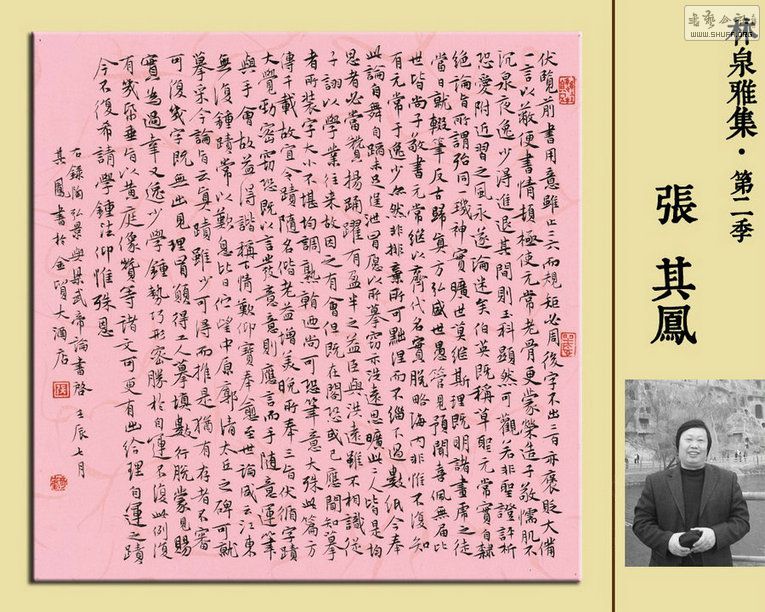 林泉雅集·第二季
張其鳳
WWW.SHUFA.ORG
伏覽前書用意雖止二六而規矩必周後字不出二百亦褒貶大備
一言以蔽便書情頓極使元常老骨更蒙榮造子敬懦肌不
沉泉夜逸少得進退其間則玉科顯然可觀若非聖證許析
恐愛附近習之風永遂淪迷矣伯英既稱草聖元常實自隸
絕論旨所謂殆同一璣神實曠世莫繼斯理既明諸畫虎之徒
當日就輟筆反古歸真方弘盛世愚管見預聞喜佩無屆比
世皆尚子敬書元常繼以齊代名實脫略海內非惟不復知
有元常于逸少亦然非排棄所可黜涅而不緇不過數紙今奉
此論自舞自蹈未足逞泄日願以所摹竊示洪遠思曠此二人皆是均
思者必當贊揚踊躍有盈半之益臣與洪遠雖不相識從
子詡以學業往來故因之有會但既在閣恐或已應聞知摹
者所裝字大小不堪均調熟翰洒尚可恐筆意大殊此篇方
傳千載故宜令蹟隨名偕老益增美晚所奉三旨伏循字蹟
大覺勁密竊恐既以言發意意則應言而手隨意運筆
與手會故益得諧稱下情歡仰寶奉愈至世論咸云江東
無復鍾蹟常以歎息比日佇望中原廓清太丘之碑可就
摹采今論旨云真蹟雖少可得而推是猶有存者不審
可復幾字既無出見理冒願得工人摹填數行脫蒙見賜
實為過幸又逸少學鍾勢巧形密勝於自運不復此例復
有幾紙垂旨以黃庭像贊等諸文可更有出給理自運之蹟
今不復希請學鍾法仰惟殊恩
右錄陶弘景與梁武帝論書啓壬辰七月
其鳳書於金貿大酒店